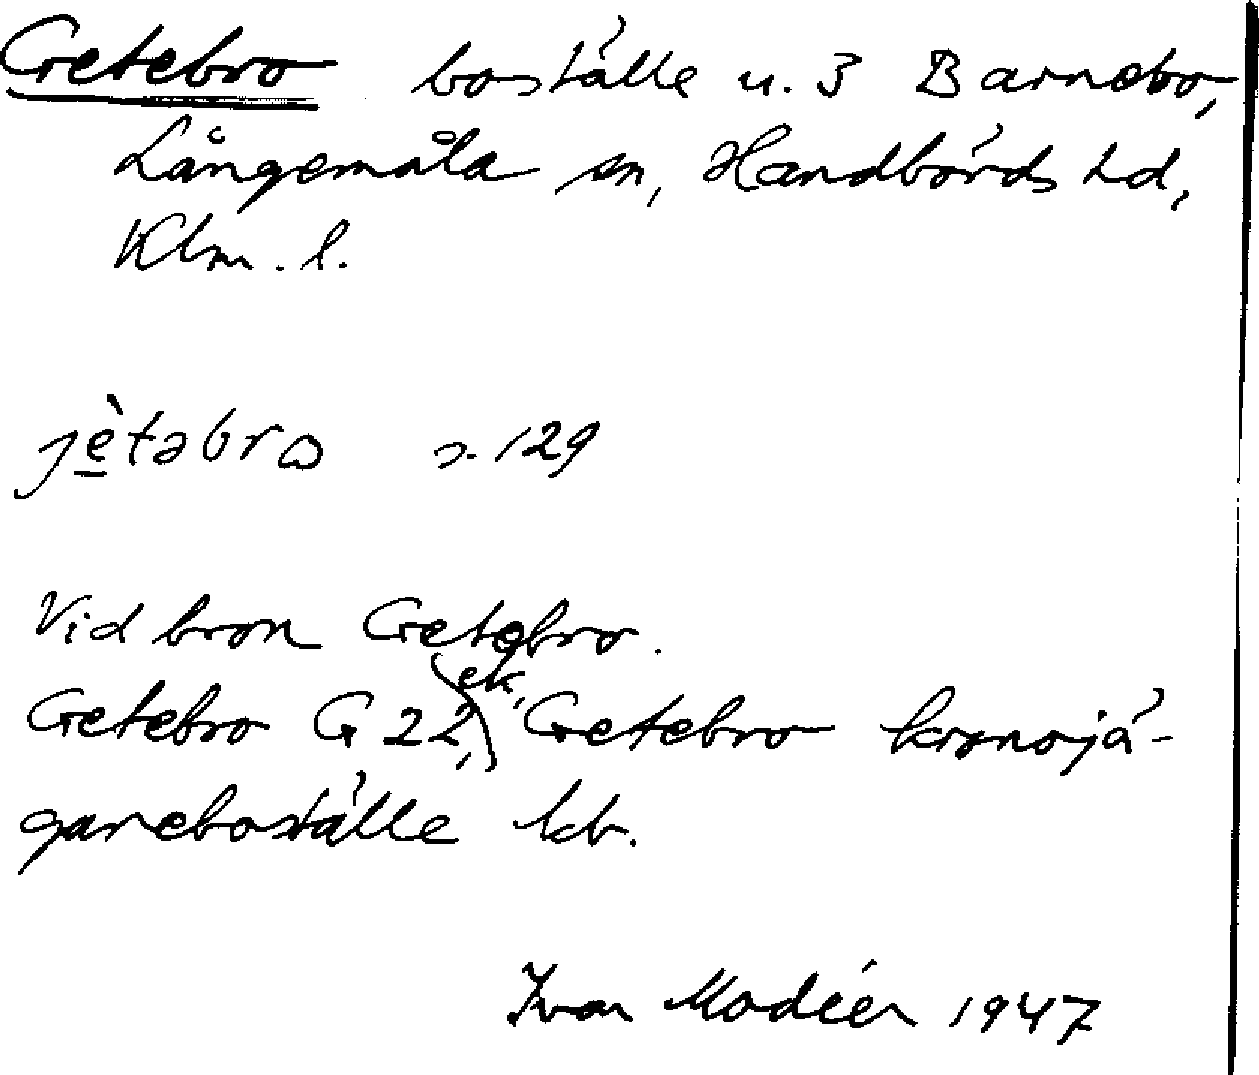 Getebro boställe u. 3 Barnebo,
Långemåla sn, Handbörds hd,
Klm. l.
jè̱təbrɷ s. 129
Vid bron Getebro.
Getebro G 22, ek, Getebro kronojä-
gareboställe kb.
Ivar Modéer 1947